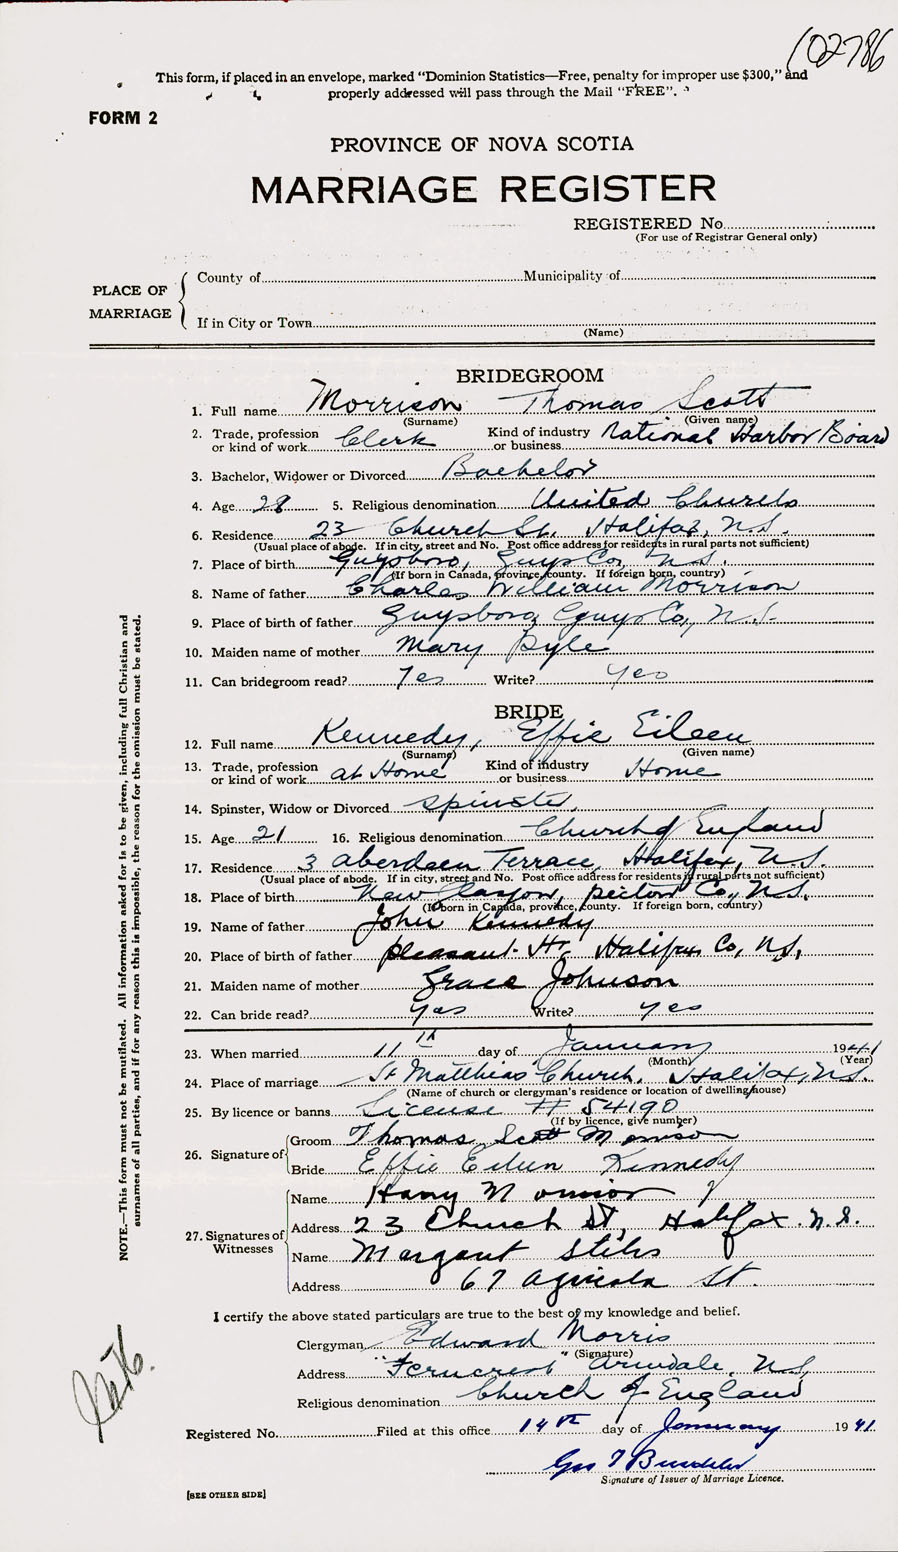 102786
This form, if placed in an envelope, marked "Dominion Statistics—Free, penalty for improper use $300," and
properly addressed will pass through the Mail "FREE".
FORM 2
PROVINCE OF NOVA SCOTIA
MARRIAGE REGISTER
REGISTERED No.
(For use of Registrar General only)
PLACE OF MARRIAGE
County of Municipality of
If in City or Town
(Name)
BRIDEGROOM
1. Full name Morrison Thomas Scott
(Surname) (Given name)
2. Trade, profession or kind of work Clerk Kind of industry or business National Harbor Board
3. Bachelor, Widower or Divorced Bachelor
4. Age 28 5. Religious denomination United Church
6. Residence 23 Church St. Halifax, N.S.
(Usual place of abode. If in city, street and No. Post office address for residents in rural parts not sufficient)
7. Place of birth Guysboro, Guys Co, N.S.
(If born in Canada, province, county. If foreign born, country)
8. Name of father Charles William Morrison
9. Place of birth of father Guysboro, Guys Co, N.S.
10. Maiden name of mother Mary Pyle
11. Can bridegroom read? Yes Write? Yes
BRIDE
12. Full name Kennedy, Effie Eileen
(Surname) (Given name)
13. Trade, profession or kind of work at Home Kind of industry or business Home
14. Spinster, Widow or Divorced Spinster
15. Age 21 16. Religious denomination Church of England
17. Residence 3 Aberdeen Terrace, Halifax, N.S.
(Usual place of abode. If in city, street and No. Post office address for residents in rural parts not sufficient)
18. Place of birth New Glasgow, Pictou Co., N.S.
(If born in Canada, province, county. If foreign born, country)
19. Name of father John Kennedy
20. Place of birth of father Pleasant Hr. Halifax Co, N.S.
21. Maiden name of mother Grace Johnson
22. Can bride read? Yes Write? Yes
23. When married 11th day of January 1941
(Month) (Year)
24. Place of marriage St Matthias Church, Halifax, N.S.
(Name of church or clergyman's residence or location of dwelling house)
25. By licence or banns License # 54190
(If by licence, give number)
26. Signature of Groom Thomas Scott Morrison
Bride Effie Eileen Kennedy
27. Signatures of Witnesses Name Harry Morrison
Address 23 Church St, Halifax N.S.
Name Margaret Stiles
Address 67 Agricola St.
I certify the above stated particulars are true to the best of my knowledge and belief.
Clergyman Edward Morris
(Signature)
Address "Ferncrest" Armdale, N.S.
Religious denomination Church of England
Registered No. Filed at this office 14th day of January 1941
Signature of Issuer of Marriage Licence.
[SEE OTHER SIDE]
NOTE.—This form must not be mutilated. All information asked for is to be given, including full Christian and
surnames of all parties, and if for any reason this is impossible, the reason for the omission must be stated.